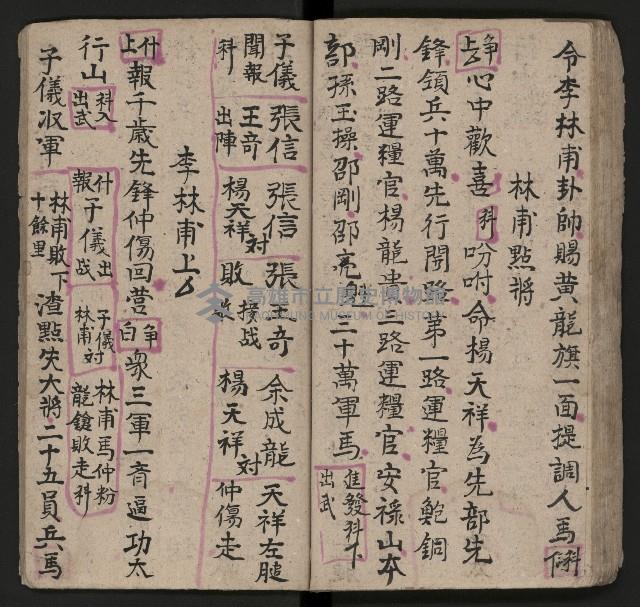 令李林甫卦帥賜黃龍旗一面提調人馬科下
林甫點將
争上心中歡喜科吩咐命楊天祥為先部先
鋒領兵十萬先行開路第一路運糧官鮑銅
剛二路運糧官楊龍忠三路運糧官安祿山本
部孫玉操邵剛邵亮三十萬軍馬進發科下出武
子儀聞報科
張信王奇出陣
張信楊天祥对敗
張王奇接战
余成龍楊天祥对
天祥左腿仲傷走
李林甫上厶
什上報千歲先鋒仲傷回营争白衆三軍一音逼功太
行山科入出武什報子儀出战子儀林甫对林甫馬仲粉龍鎗敗走科
子儀収軍林甫敗下十餘里渣點失大將二十五員兵馬
高雄市立歷史博物館
KAOHSIUNG MUSEUM OF HISTORY